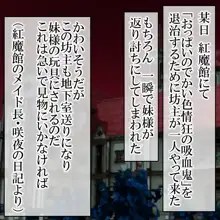 某日 紅魔館にて
「おっぱいのでかい色情狂の吸血鬼」を
退治するために坊主が一人やって来た
もちろん 一瞬で妹様が
返り討ちにしてしまわれた
かわいそうだが
この坊主も地下室送りになり
妹様の玩具にされるのだ
これは急いで見物にいかなければ
(紅魔館のメイド長・咲夜の日記より)